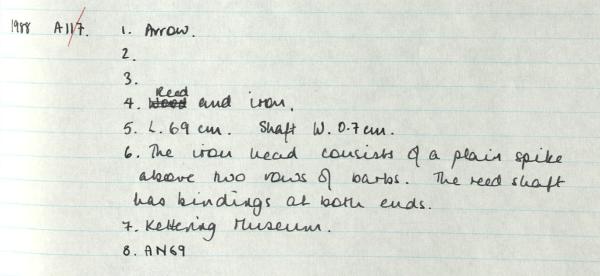 1988 A117. 1. Arrow.
2.
3.
4. Reed and iron.
5. L. 69 cm. Shaft W. 0.7 cm.
6. The iron head consists of a plain spike
above two rows of barbs. The reed shaft
has bindings at both ends.
7. Kettering Museum.
8. AN69